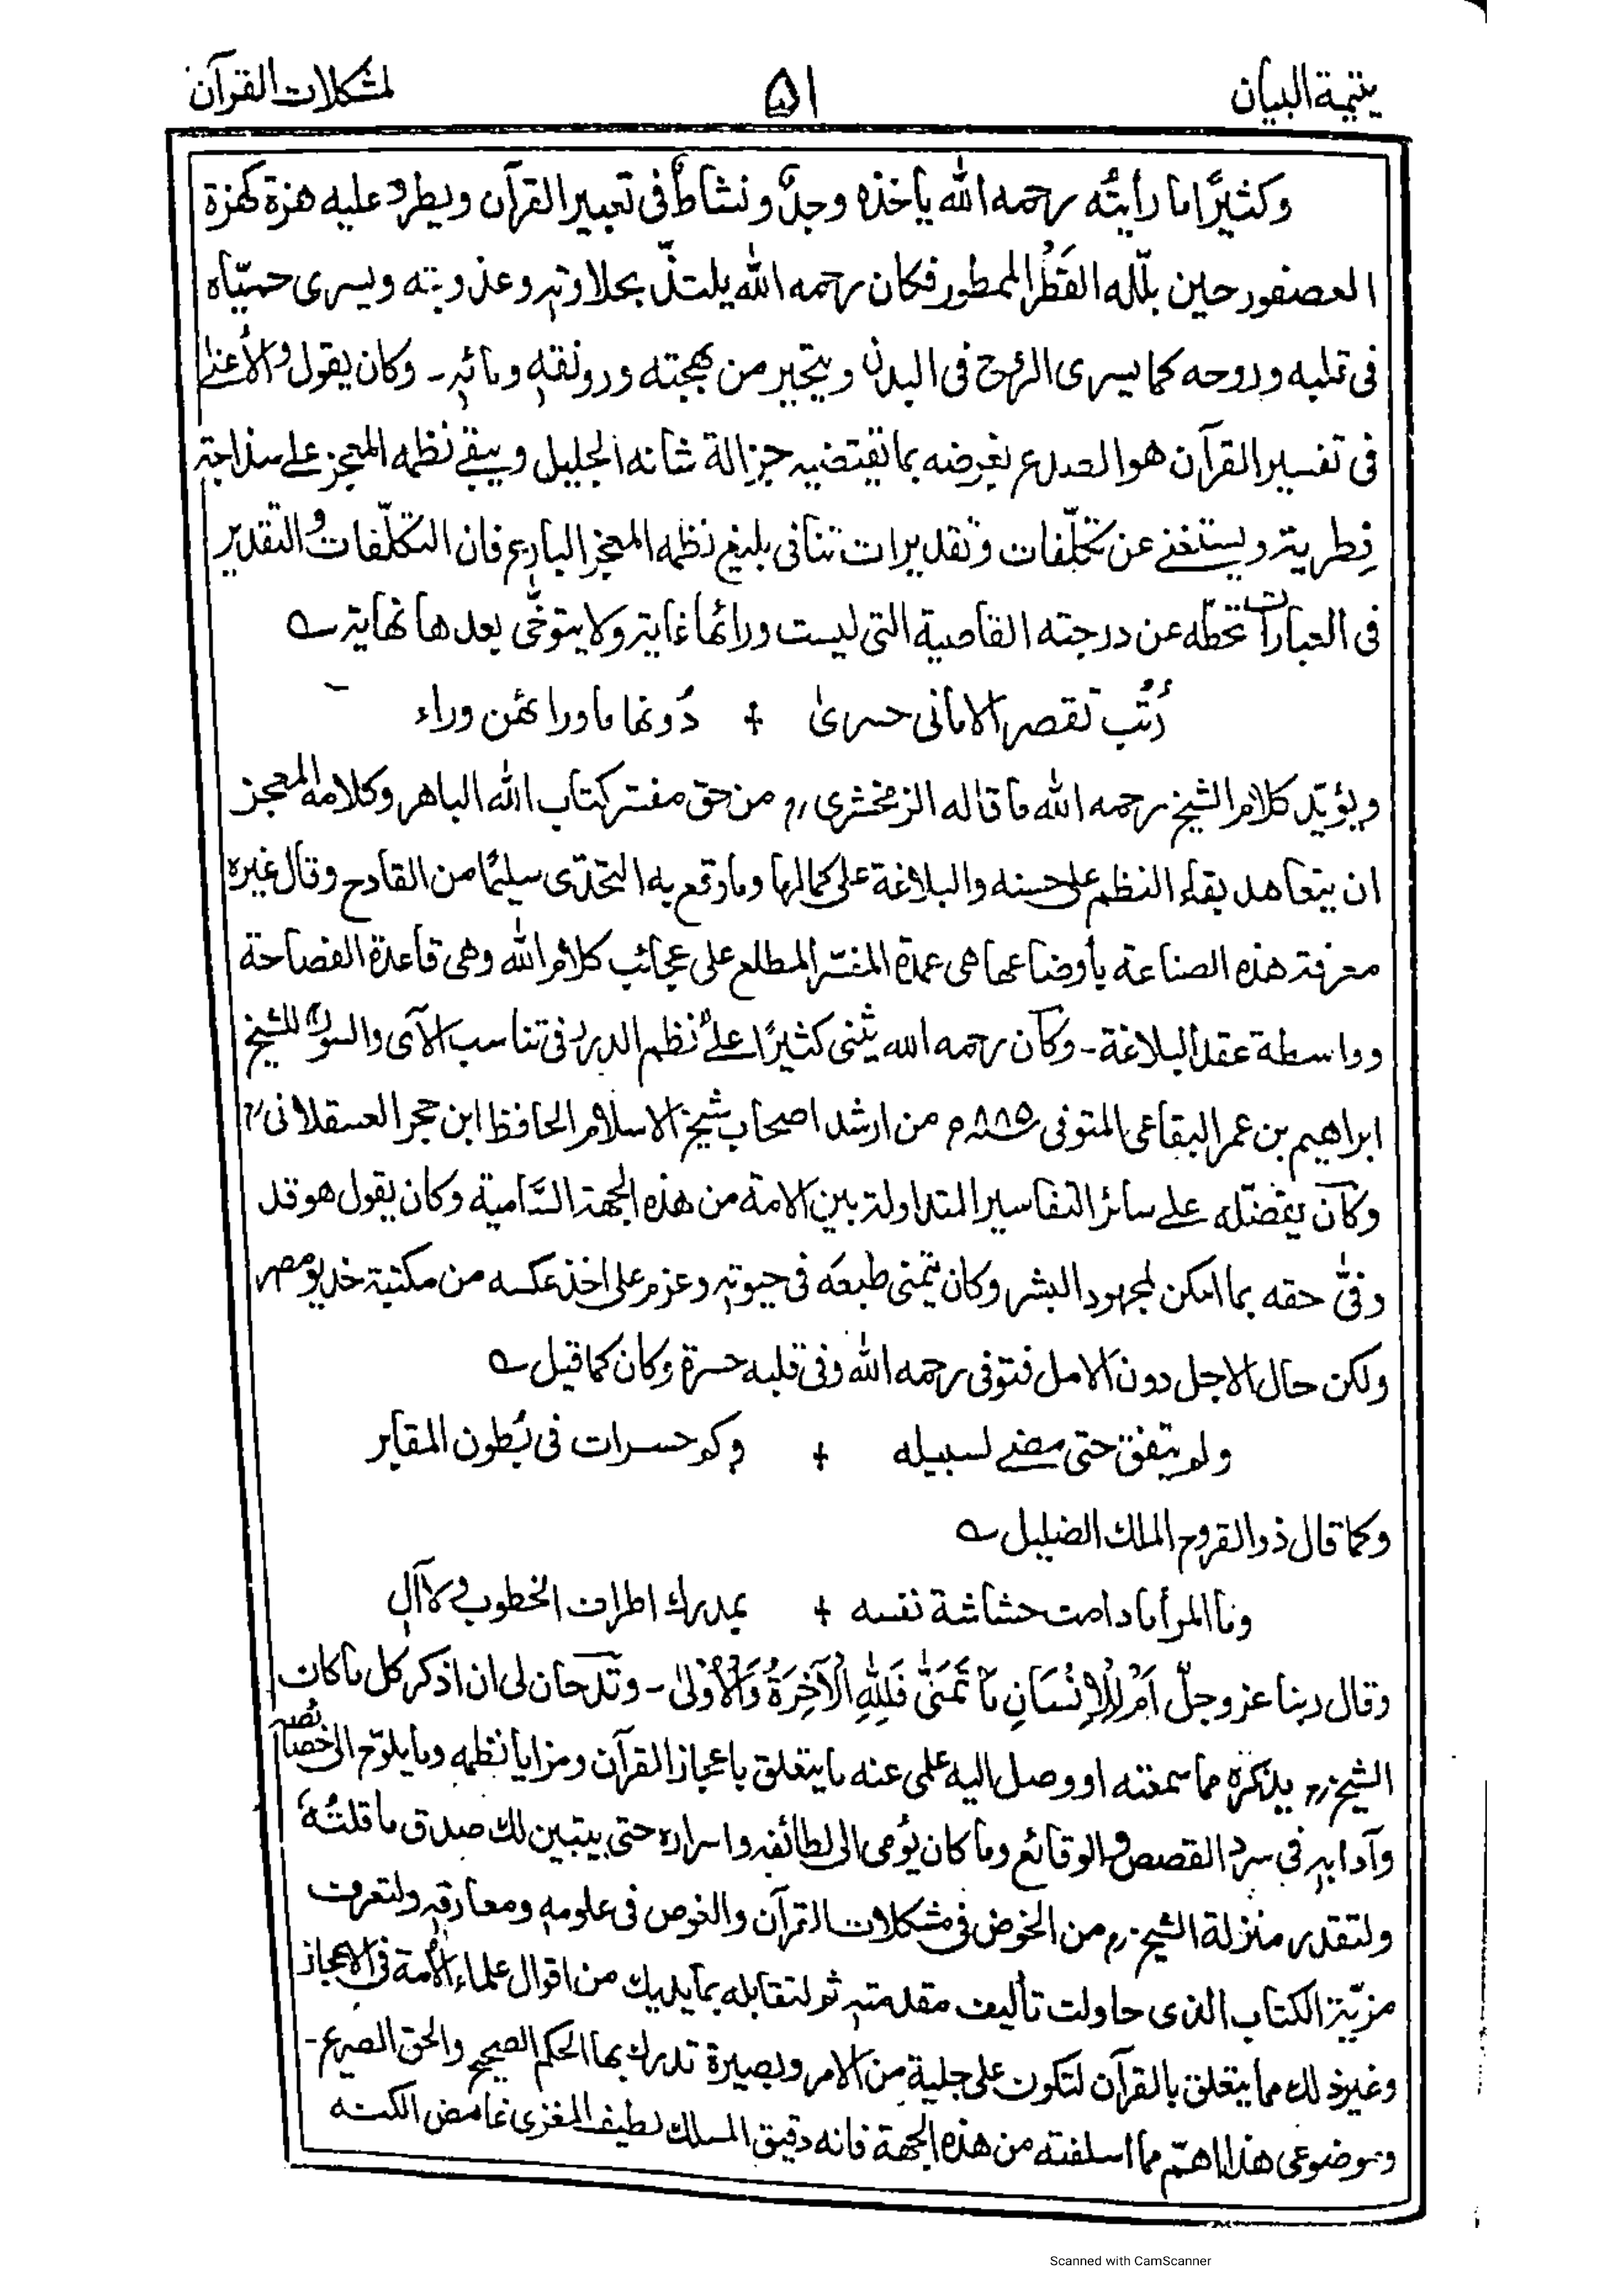 يتيمة البيان
٥١
لمشكلات القرآن
وكثيرًا ما رأيتُه رحمه الله يأخذه وجدٌ و نشاطٌ فى تعبير القرآن ويطرد عليه هزة كهزة
العصفور حين بلّله القَطْرُ الممطور فكان رحمه الله يلتذّ بحلاوتهٖ وعذوبته ويسرى حميّاه
فى قلبه وروحه كما يسرى الروح فى البدن ويتحير من بهجته ورونقهٖ ومائهٖ۔ وكان يقول والأغلى
فى تفسير القرآن هو الصدع بغرضه بما تقتضيه جزالة شانه الجليل ويبقى نظمه المعجز على سذاجة
فِطرية ويستغنى عن تكلّفات وتقديرات تنافى بليغ نظمه المعجز البارع فان التكلّفات والتقدير
فى العبارات تحطّه عن درجته القاصية التى ليست ورائها غاية ولا يتوخّى بعدها نهاية ؎
رُتَب تقصر الامانى حسرىٰ + دُونها ما ورائهن وراء
ويؤيّد كلام الشيخ رحمه الله ما قاله الزمخشرى رح من حق مفسّر كتاب الله الباهر وكلامه المعجز
ان يتعاهد بقاء النظم على حسنه والبلاغة على كمالها وما وقع به التحدّى سليمًا من القادح وقال غيره
معرفة هذه الصناعة بأوضاعها هى عمدة المفسّر المطلع على عجائب كلام الله وهى قاعدة الفصاحة
وواسطة عقد البلاغة۔ وكان رحمه الله يثنى كثيرًا على نظم الدرر فى تناسب الآى والسور للشيخ
ابراهيم بن عمر البقاعى المتوفى ٨٨٥ھ من ارشد اصحاب شيخ الاسلام الحافظ ابن حجر العسقلانى رح
وكان يفضّله على سائر التفاسير المتداولة بين الامة من هذه الجهة السَّامية وكان يقول هو قد
وفّى حقه بما امكن لمجهود البشر وكان يتمنى طبعَه فى حيوتهٖ وعزم على اخذ عكسه من مكتبة خديو مصر
ولكن حال الاجل دون الامل فتوفى رحمه الله وفى قلبه حسرة وكان كما قيل ؎
ولم يتفق حتى مضى لسبيله + وكم حسرات فى بُطون المقابر
وكما قال ذو القروح الملك الضليل ؎
وما المرأ ما دامت حشاشة نفسه + بمدرك اطراف الخطوب ولا آلٖ
وقال ربنا عز وجلّ اَمْ لِلْاِنْسَانِ مَا تَمَنّٰى فَلِلّٰهِ الْآخِرَةُ وَالْاُوْلىٰ۔ وقد حان لى ان اذكر كل ما كان
الشيخ رح يذكره مما سمعته او وصل اليه علمى عنه ما يتعلق باعجاز القرآن ومزايا نظمه وما يلوّح الى خصائصه
وآدابهٖ فى سرد القصص والوقائع وما كان يُومى الى لطائفه واسراره حتى يتبين لك صدق ما قلتُهُ
ولتقدر منزلة الشيخ رح من الخوض فى مشكلات القرآن والغوص فى علومهٖ ومعارفهٖ ولتعرف
مزيّة الكتاب الذى حاولت تأليف مقدمتهٖ ثم لتقابله بما يليك من اقوال علماء الأمة فى الاعجاز
وغير ذلك مما يتعلق بالقرآن لتكون على جلية من الامر وبصيرة تدرك بها الحكم الصحيح والحق الصريح۔
وموضوعى هذا اهمّ مما اسلفته من هذه الجهة فانه دقيق المسلك لطيف المغزى غامض الكنه
Scanned with CamScanner